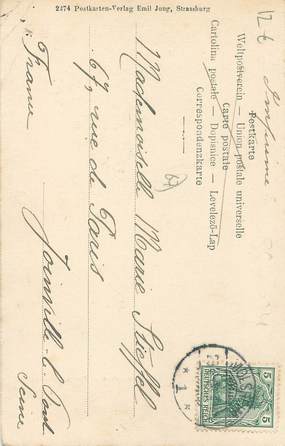 2474 Postkarten-Verlag Emil Jong, Strassburg
12 €
Imprimé
Postkarte
Weltpostverein — Union postale universelle
Carte postale
Cartolina postale — Dopisnice — Levelező-Lap
Correspondenzkarte
Mademoiselle Marie
67, rue de Paris
Joinville-le-Pont
Seine
France
5 5
DEUTSCHES REICH